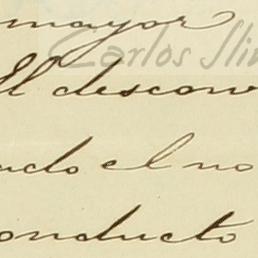 mayor
Carlos Slim
El descon
ado el no
onducto